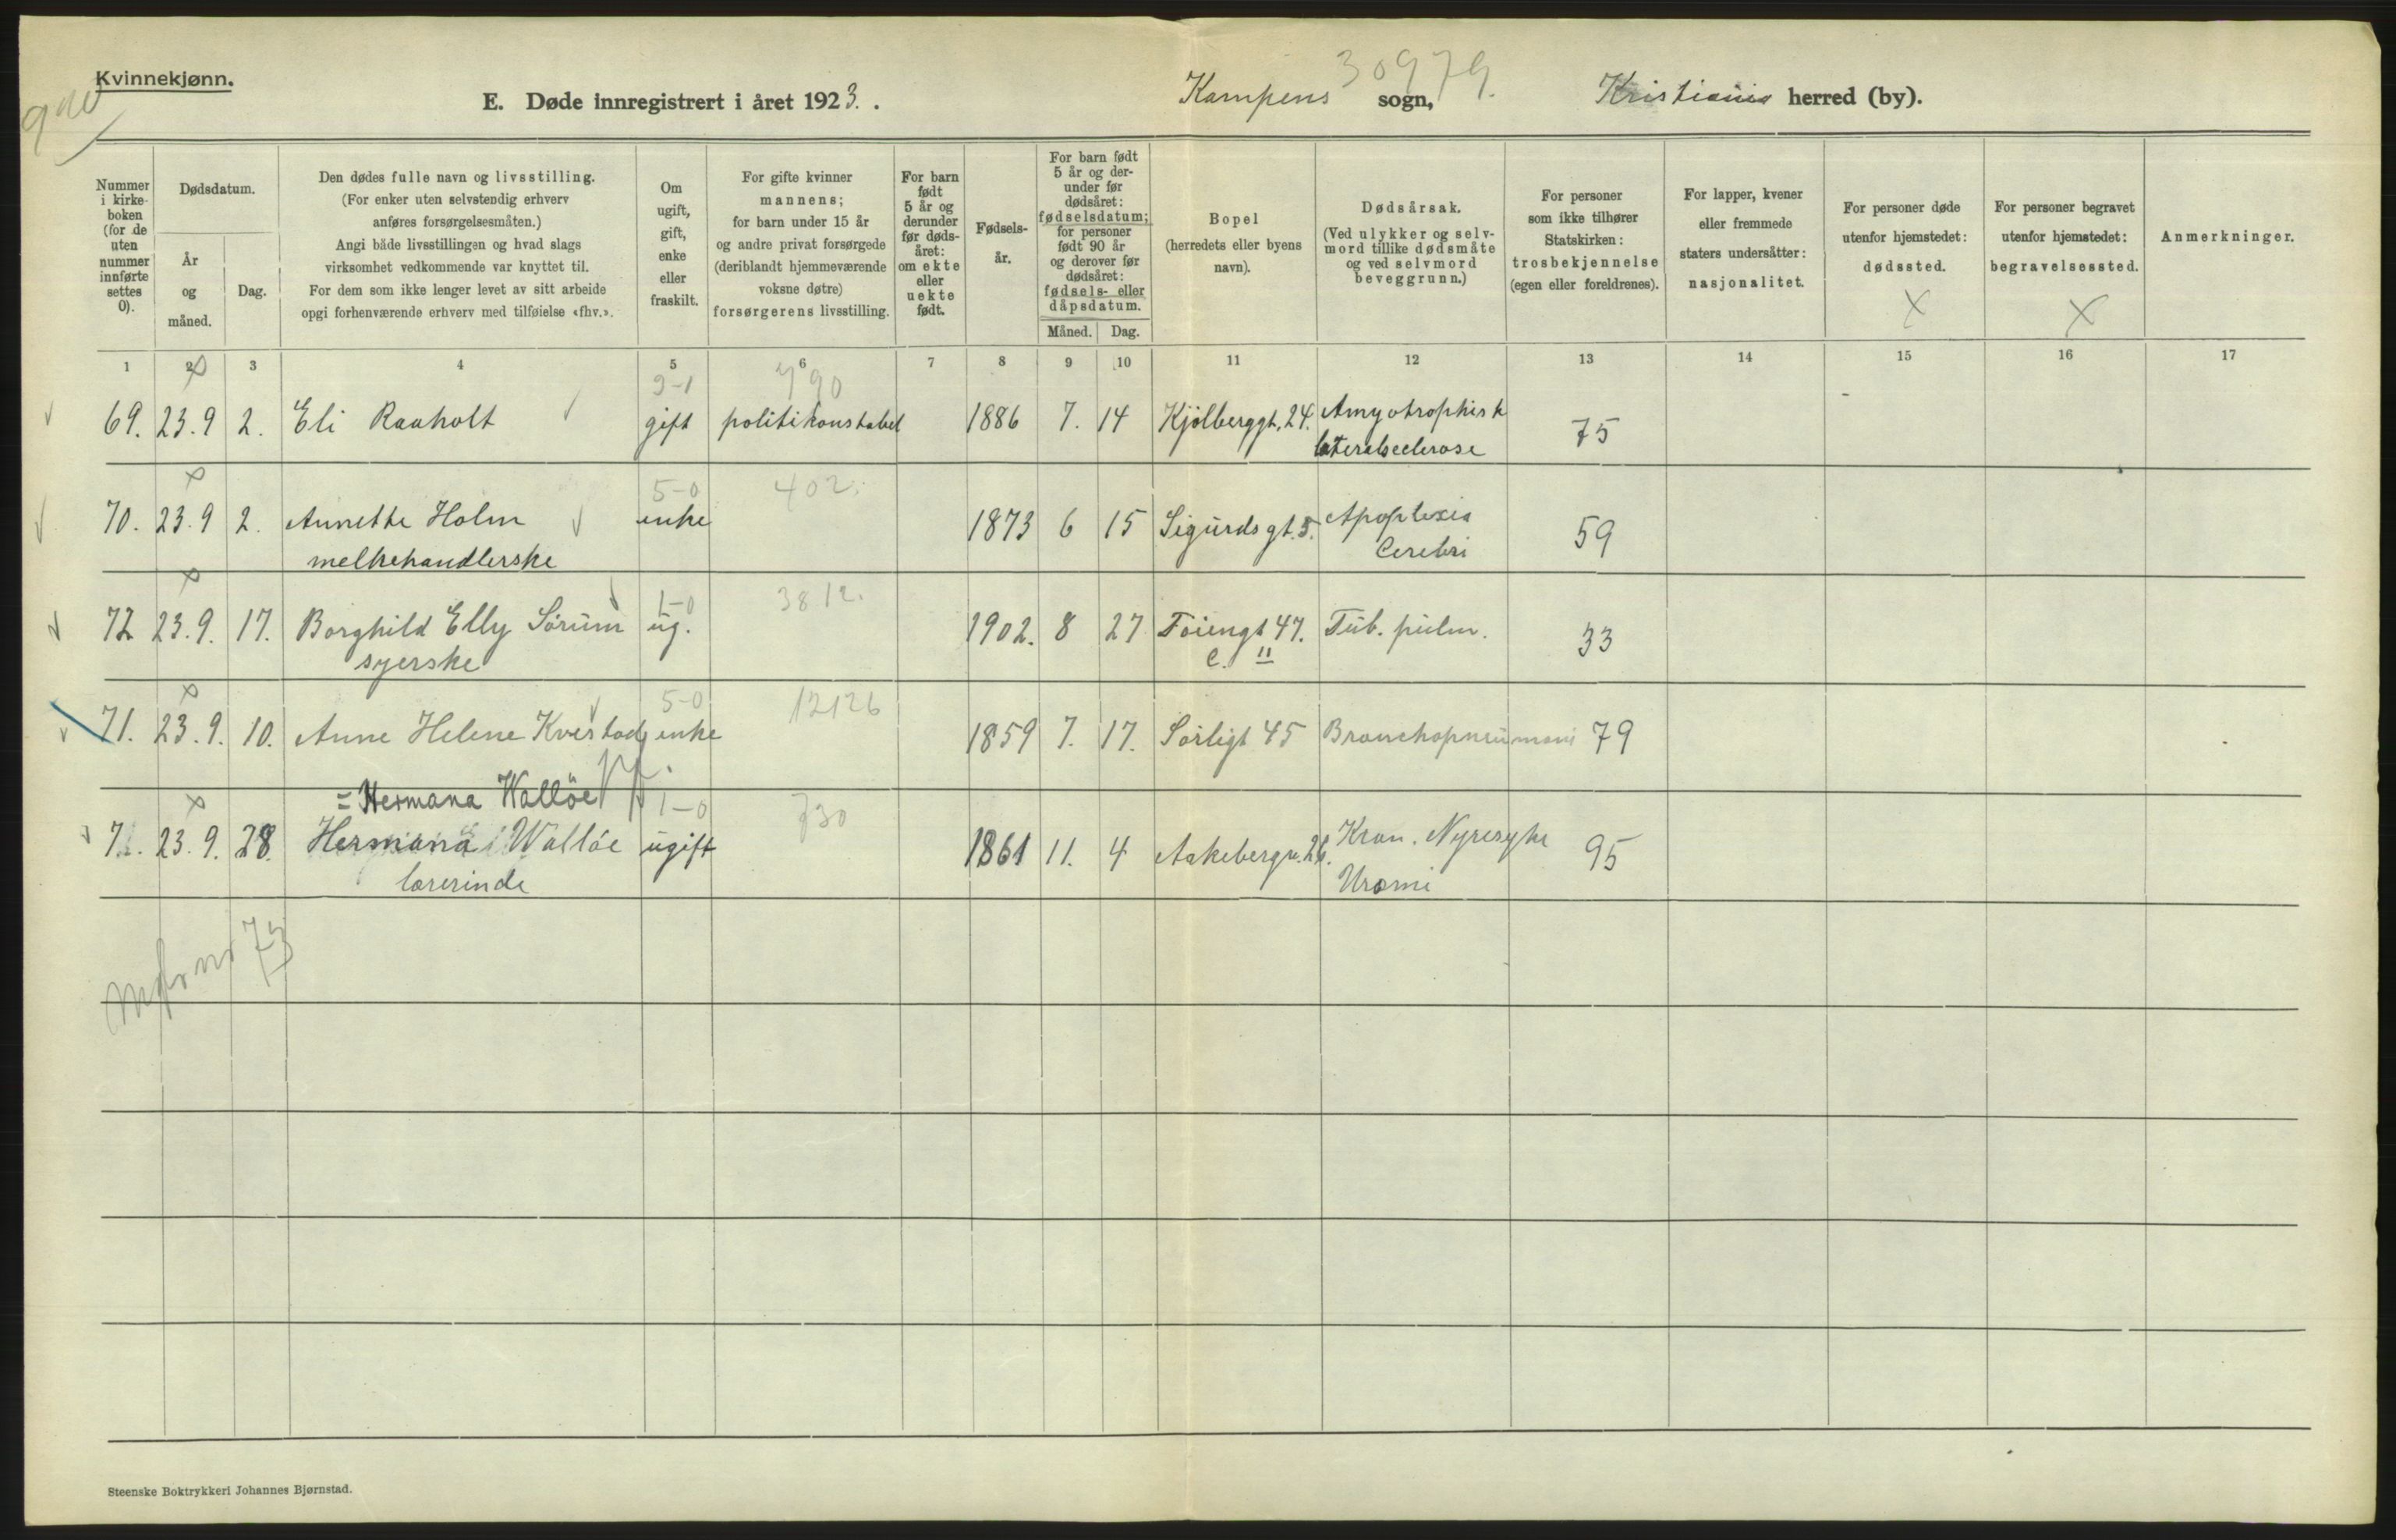 Kvinnekjønn.
E. Døde innregistrert i året 1923. .
Kampens sogn,
30979.
Kristiania herred (by).
Nummer i kirke- boken (for de uten nummer innførte settes 0).
Dødsdatum.
År og måned.
Dag.
Den dødes fulle navn og livsstilling.
(For enker uten selvstendig erhverv
anføres forsørgelsesmåten.)
Angi både livsstillingen og hvad slags
virksomhet vedkommende var knyttet til.
For dem som ikke lenger levet av sitt arbeide
opgi forhenværende erhverv med tilføielse «fhv.».
Om ugift, gift, enke eller fraskilt.
For gifte kvinner
mannens;
for barn under 15 år
og andre privat forsørgede
(deriblandt hjemmeværende
voksne døtre)
forsørgerens livsstilling.
For barn født 5 år og derunder før døds- året: om ekte eller uekte født.
Fødsels- år.
For barn født
5 år og der-
under før
dødsåret:
fødselsdatum;
for personer
født 90 år
og derover før
dødsåret:
fødsels- eller
dåpsdatum.
Måned. Dag.
Bopel
(herredets eller byens
navn).
Dødsårsak.
(Ved ulykker og selv-
mord tillike dødsmåte
og ved selvmord
beveggrunn.)
For personer
som ikke tilhører
Statskirken:
trosbekjennelse
(egen eller foreldrenes).
For lapper, kvener
eller fremmede
staters undersåtter:
nasjonalitet.
For personer døde
utenfor hjemstedet:
dødssted.
X
For personer begravet
utenfor hjemstedet:
begravelsessted.
X
Anmerkninger.
1 2 3 4 5 6 7 8 9 10 11 12 13 14 15 16 17
9-1 790
69. 23.9 2. Eli Raaholt gift politikonstabel 1886 7. 14 Kjølberggt. 24. Amyotrophisk 75
lateralsclerose
5-0 402.
70. 23.9 2. Annette Holm enke 1873 6 15 Sigurdsgt. 5. Apoplexia 59
melkehandlerske Cerebri
1-0 3812.
72 23.9. 17. Borghild Elly Sörum ug. 1902. 8 27 Töiengt 47. Tub. pulm. 33
syerske C. II
5-0 12126
71. 23.9. 10. Anne Helene Kverstad enke 1859 7. 17. Sörligt 45 Bronchopneumoni 79
= Hermana Wallöe
1-0 730
7 . 23.9. 28. Hermana Wallöe ugift 1861 11. 4 Aakebergv. 26. Kron. Nyresyke 95
lærerinde Uræmi
nr 73
Steenske Boktrykkeri Johannes Bjørnstad.